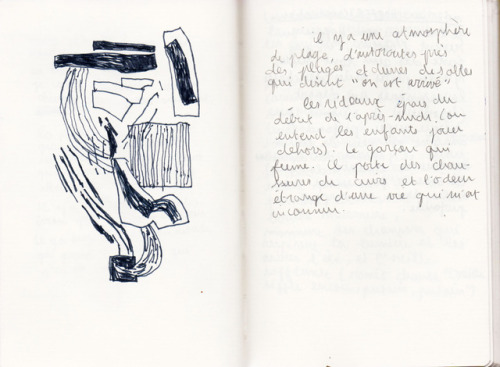 il y a une atmosphère
de plage, d'autoroutes près
des plages et dunes de sables
qui disent "on est arrivé"
les rideaux épais du
début de l'après-midi (on
entend les enfants jouer
dehors). Le garçon qui
fume. Il porte des chau-
ssures de cuirs et l'odeur
étrange d'une vie qui m'est
inconnue.